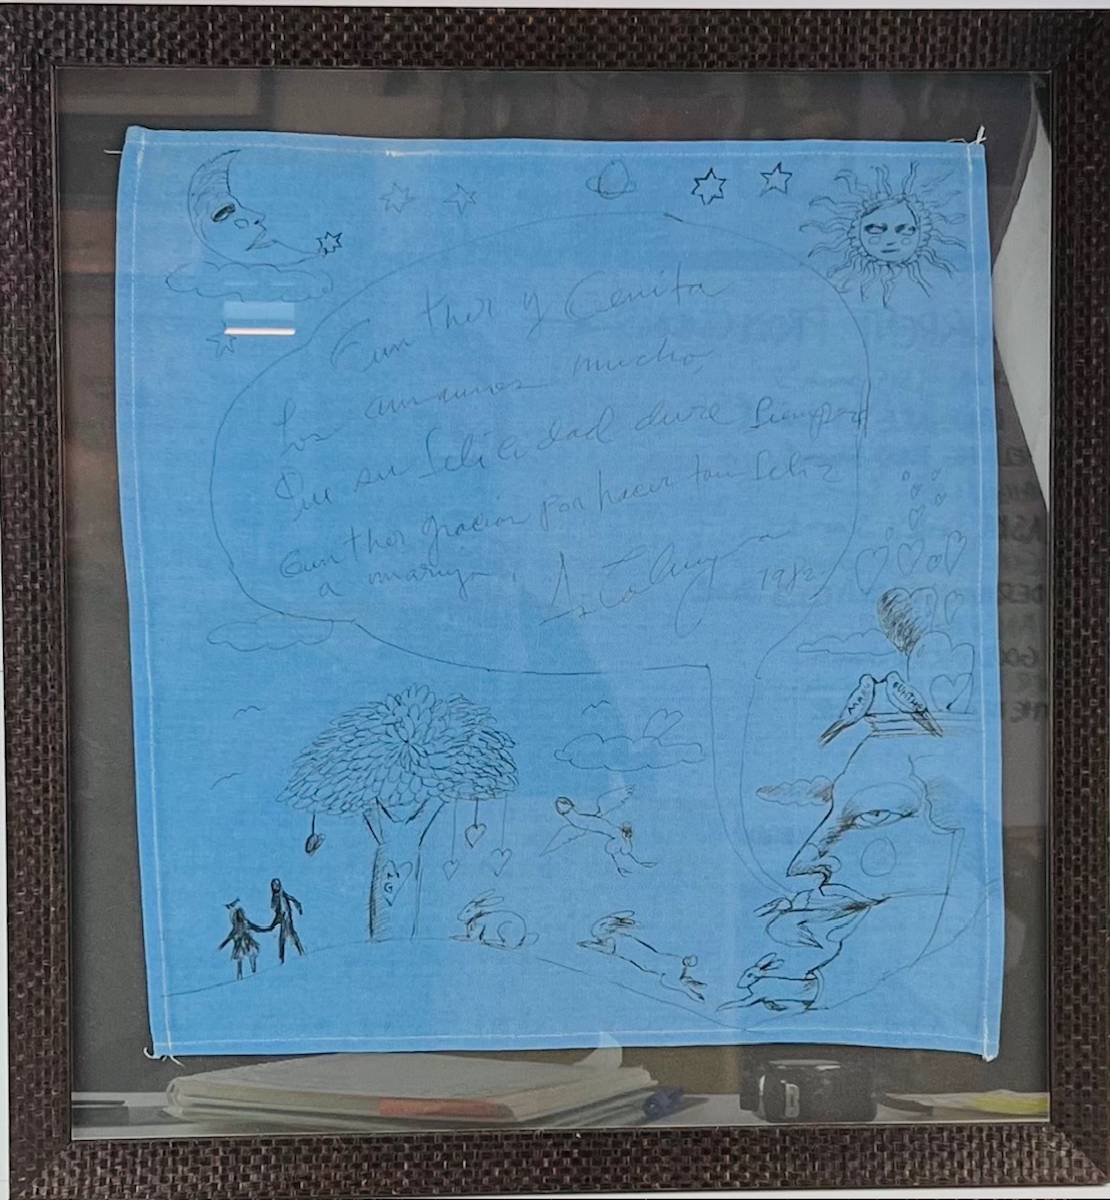 Gunther y Cenita
Los amamos mucho,
Que su felicidad dure siempre
Gunther gracias por hacer tan feliz
a
1982